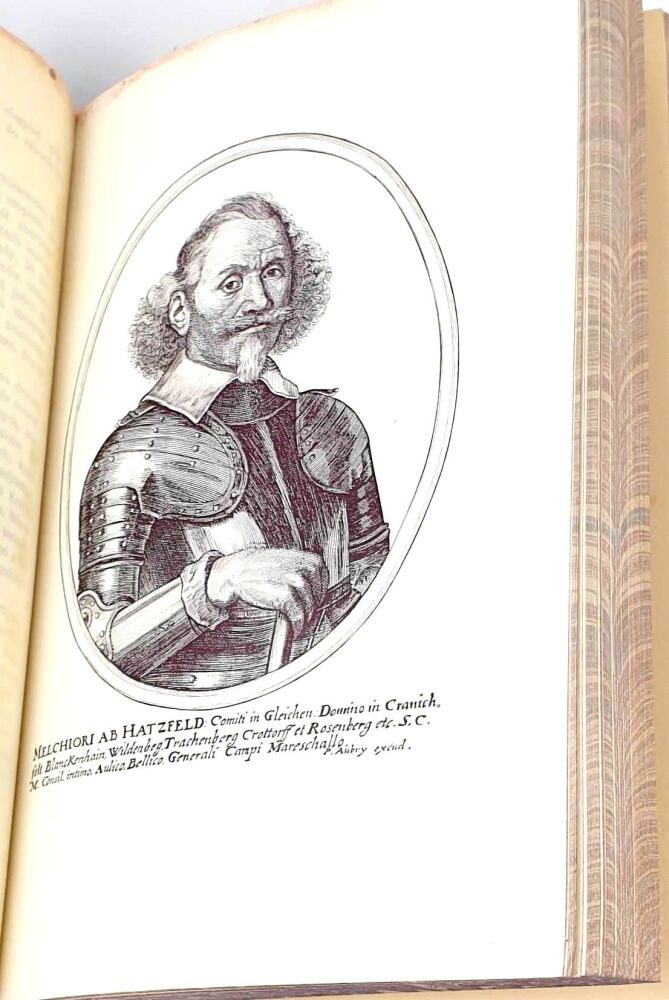 MELCHIORI AB HATZFELD Comiti in Gleichen Domino in Cranich,
felt Blanckenhain, Wildenbeg, Trachenberg Crottorff et Rosenberg etc. S.C.
M. Consil. intimo, Aulico, Bellico, Generali Campi Mareschallo
P. Aubry excud.